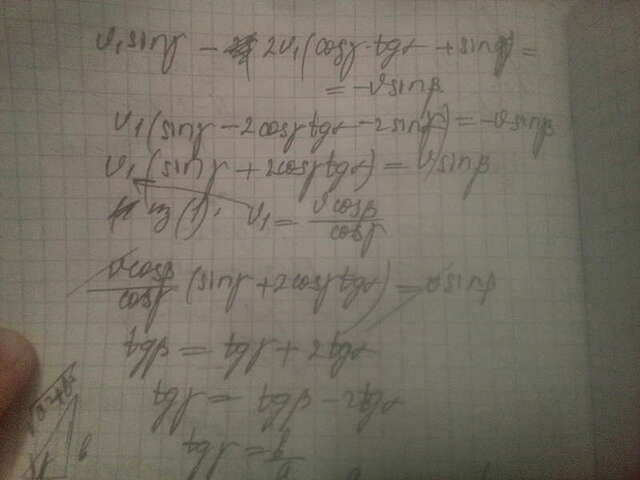 v₁sinγ − 2v₁(cosγ·tgα + sinγ) =
= −vsinβ
v₁(sinγ − 2cosγtgα − 2sinγ) = −vsinβ
v₁(sinγ + 2cosγtgα) = vsinβ
из (1): v₁ = vcosβ/cosγ
vcosβ/cosγ (sinγ + 2cosγtgα) = vsinβ
tgβ = tgγ + 2tgα
tgγ = tgβ − 2tgα
tgγ =
γ b